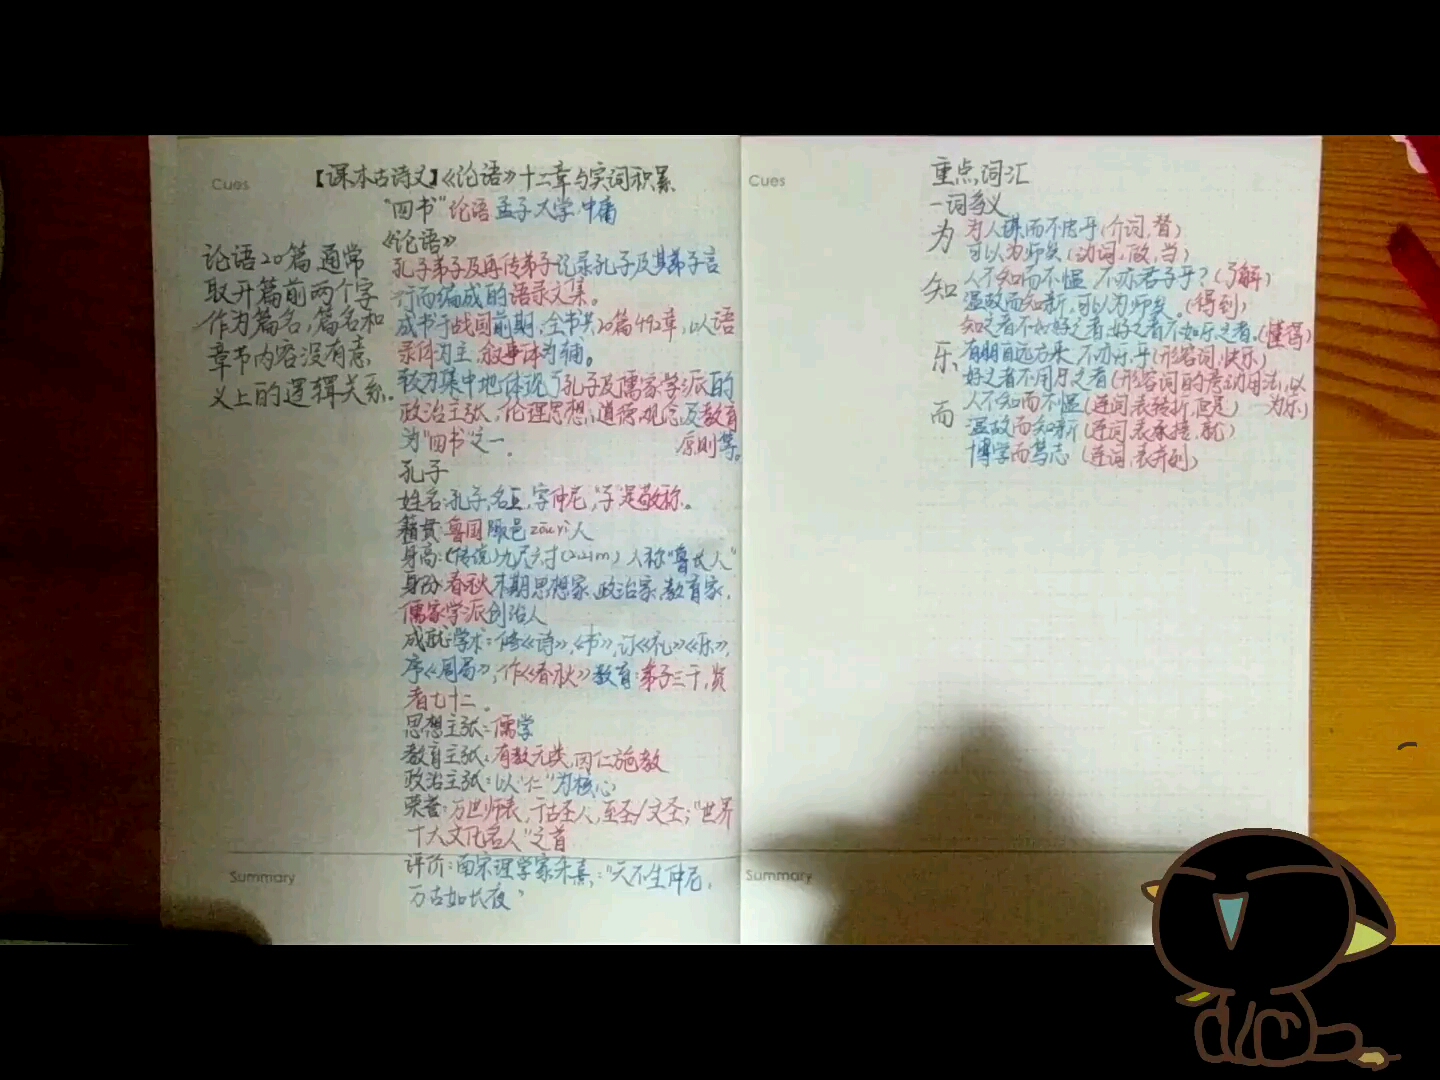 Cues
【课本古诗文】《论语》十二章与实词积累
"四书"论语 孟子 大学 中庸
论语20篇通常
取开篇前两个字
作为篇名,篇名和
章节内容没有意
义上的逻辑关系。
《论语》
孔子弟子及再传弟子记录孔子及其弟子言
行而编成的语录文集。
成书于战国前期,全书共20篇492章,以语
录体为主,叙事体为辅。
较为集中地体现了孔子及儒家学派的
政治主张,伦理思想,道德观念及教育
原则等。
为"四书"之一.
孔子
姓名:孔子,名丘,字仲尼,"子"是敬称。
籍贯:鲁国陬邑zōu yì人
身高:(传说)九尺六寸(2.21m)人称"鲁长人"
身份:春秋末期思想家,政治家,教育家,
儒家学派创始人
成就:学术:修《诗》,《书》,订《礼》《乐》,
序《周易》,作《春秋》教育:弟子三千,贤
者七十二。
思想主张:儒学
教育主张:有教无类,因仁施教
政治主张:以"仁"为核心
荣誉:万世师表,千古圣人,至圣/文圣;"世界
十大文化名人"之首
评价:南宋理学家朱熹:"天不生仲尼,
万古如长夜"
Summary
Cues
重点词汇
一词多义
为 为人谋而不忠乎(介词,替)
可以为师矣(动词,做,当)
知 人不知而不愠 不亦君子乎?(了解)
温故而知新,可以为师矣。(得到)
知之者不如好之者,好之者不如乐之者。(懂得)
乐 有朋自远方来 不亦乐乎(形容词,快乐)
好之者不用乐之者(形容词的意动用法,以
为乐)
而 人不知而不愠(连词,表转折,但是)
温故而知新(连词,表承接,就)
博学而笃志(连词,表并列)
Summary